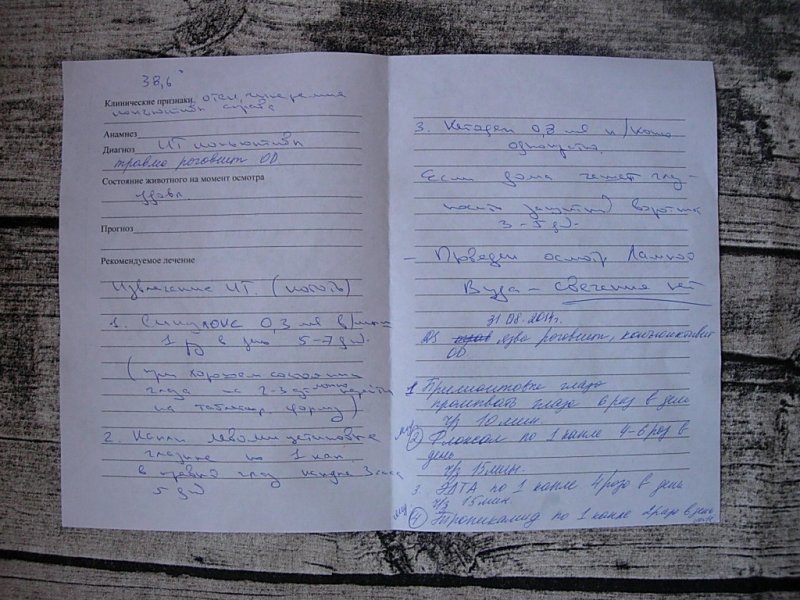 38,6°
Клинические признаки отек, гиперемия
конъюктивы справа
Анамнез
Диагноз ИТ конъюктивы
травма роговицы OD
Состояние животного на момент осмотра
удовл.
Прогноз
Рекомендуемое лечение
Извлечение ИТ. (коготь)
1. Синулокс 0,3 мл в/мыш
1 р в день 5-7 дн.
(при хорошем состоянии
глаза на 2-3 можно перейти
на таблетир. форму)
2. Капли левомицетиновые
глазные по 1 кап.
в правый глаз каждые 3 часа
5 дн
3. Кетоджект 0,3 мл п/кожно
однократно.
Если дома чешет глаз -
носить защитный воротник
3-5 дн.
- Проведен осмотр Лампой
Вуда - свечения нет
31.08.2017г.
DS язва роговицы, конъюнктивит
OD
1 Промывать глаза
6 раз в день
ч/з 10 мин
2 Флоксал по 1 капле 4-6 раз в
день
ч/з 15 мин.
3. по 1 капле 4 раза в день
ч/з 15 мин
4 Тропикамид по 1 капле 2 раза в день